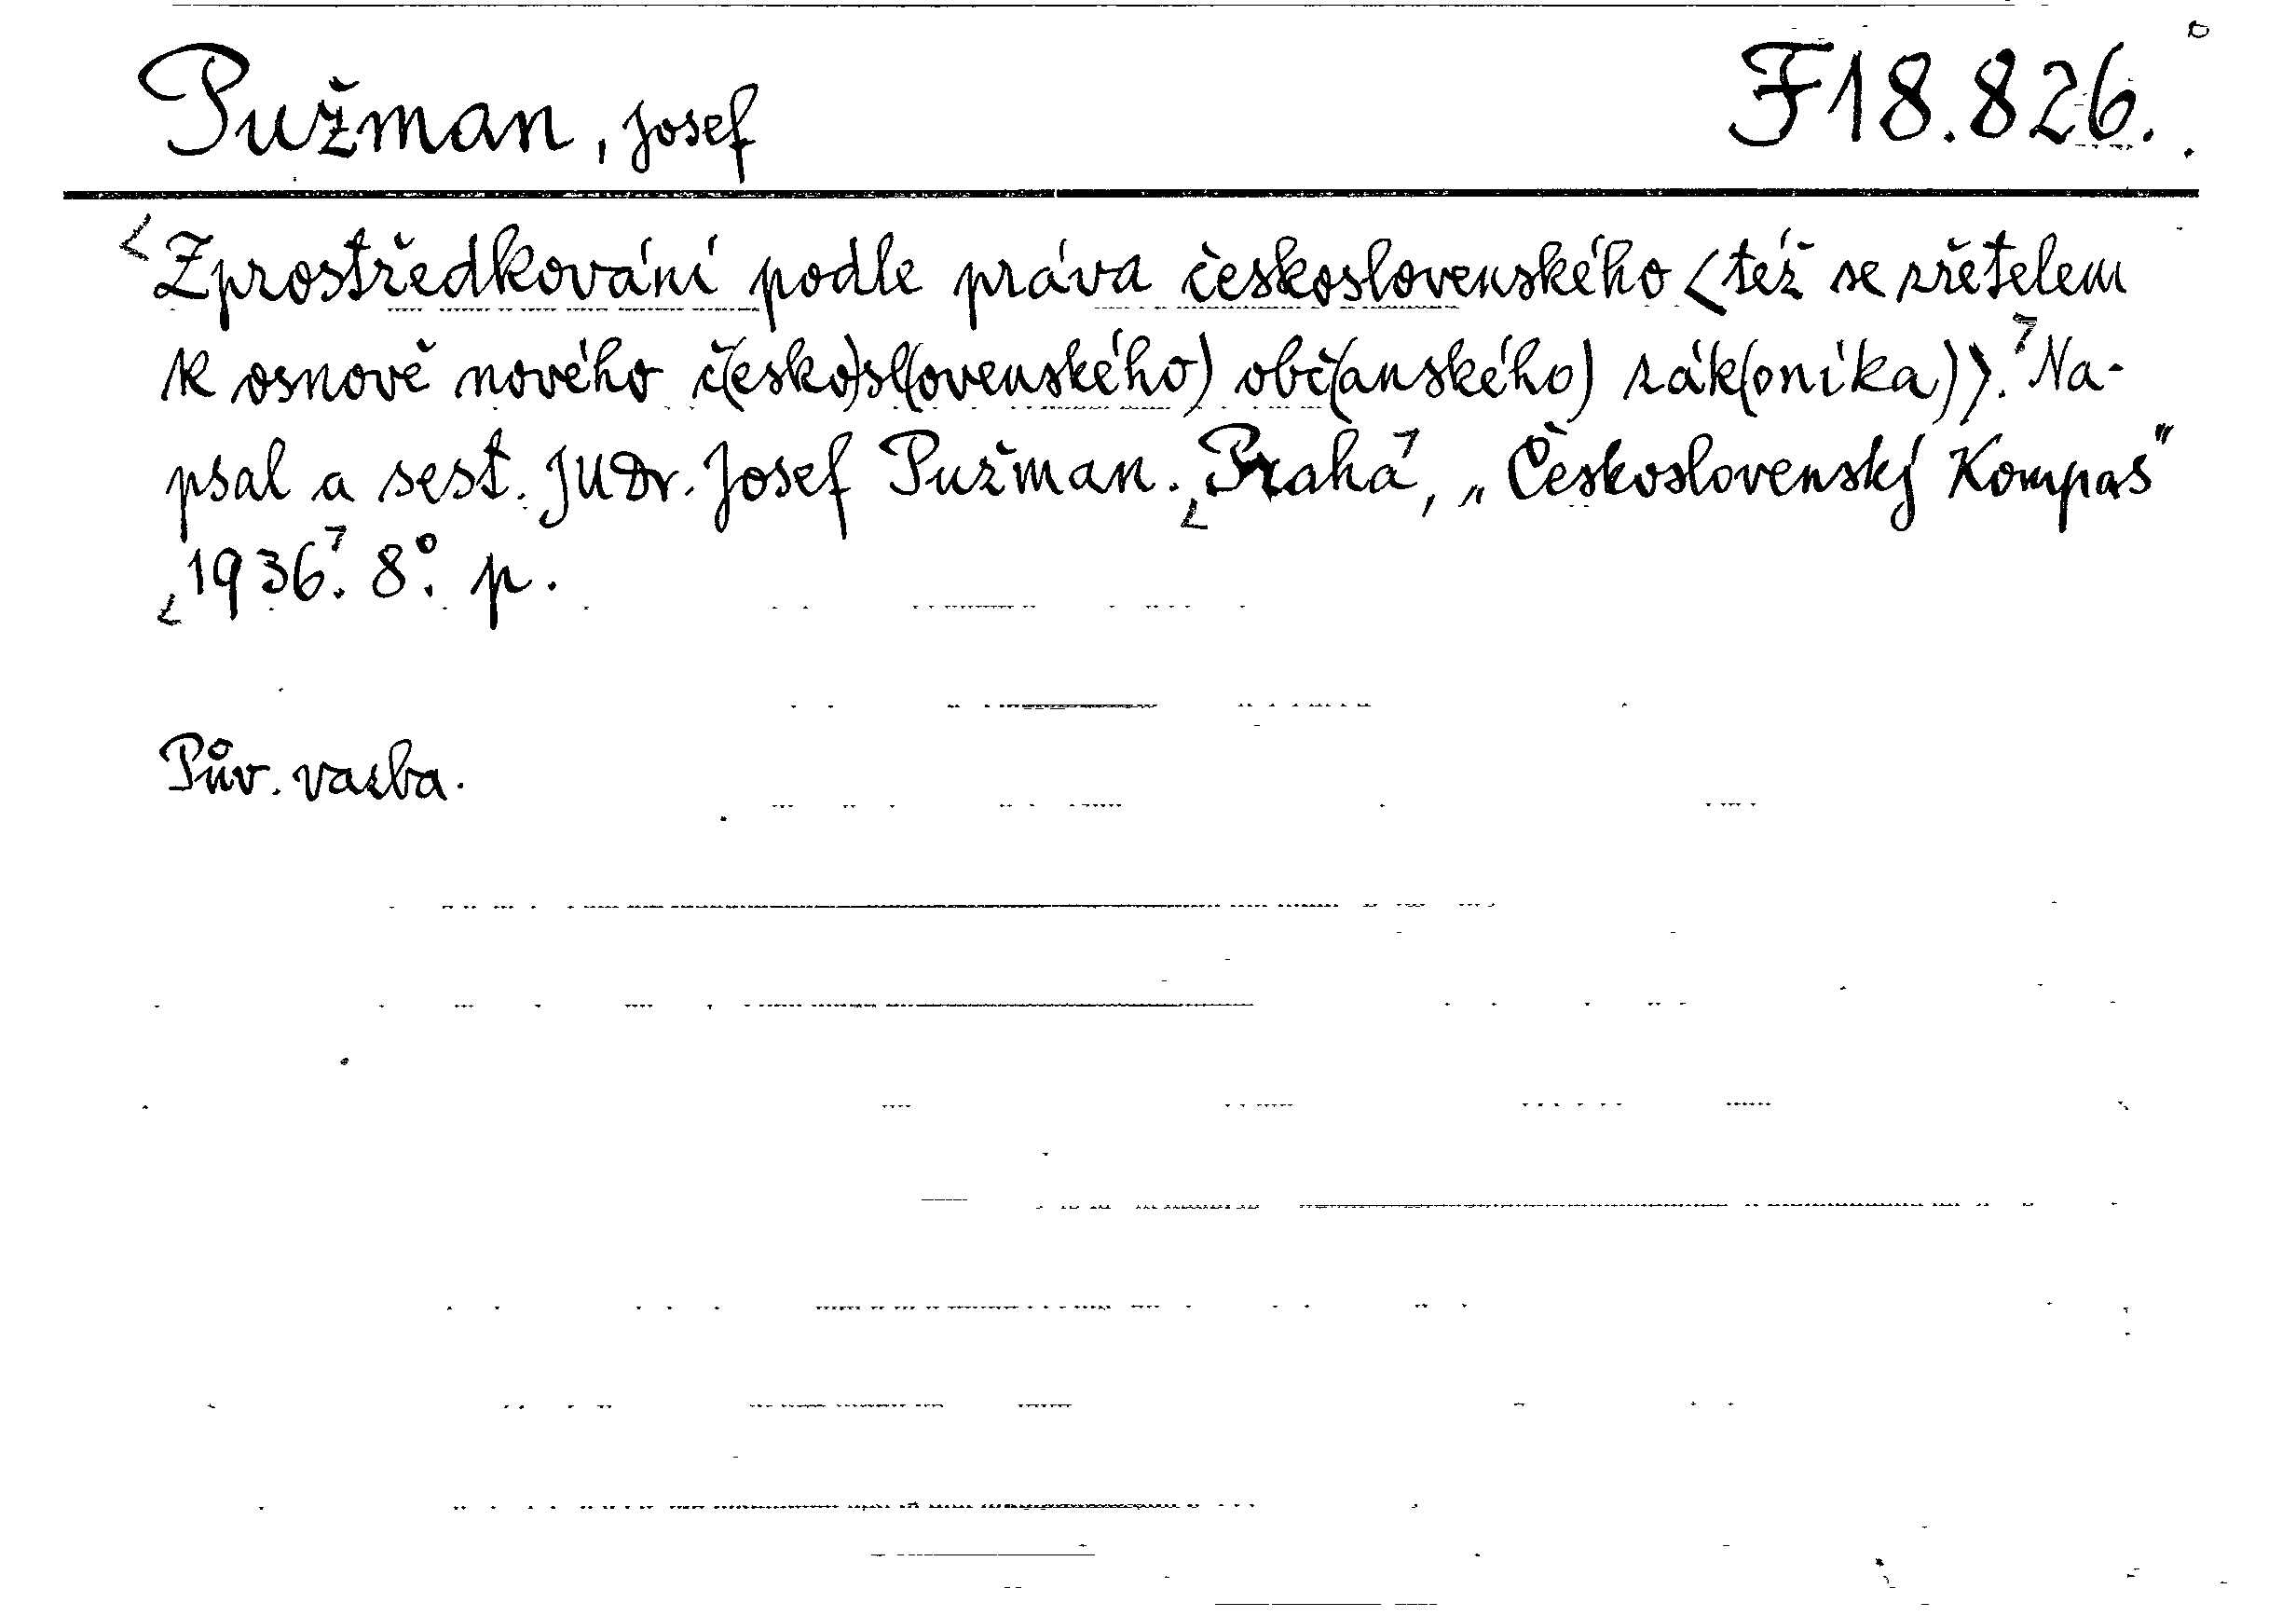 Pužman, Josef F18.826.
<Zprostředkování podle práva československého <též se zřetelem
k osnově nového č(esko)sl(ovenského) obč(anského) zák(oníka)>.> Na-
psal a sest. JUDr. Josef Pužman. <Praha>, „Československý Kompas"
<1936>. 8°. p.
Pův. vazba.